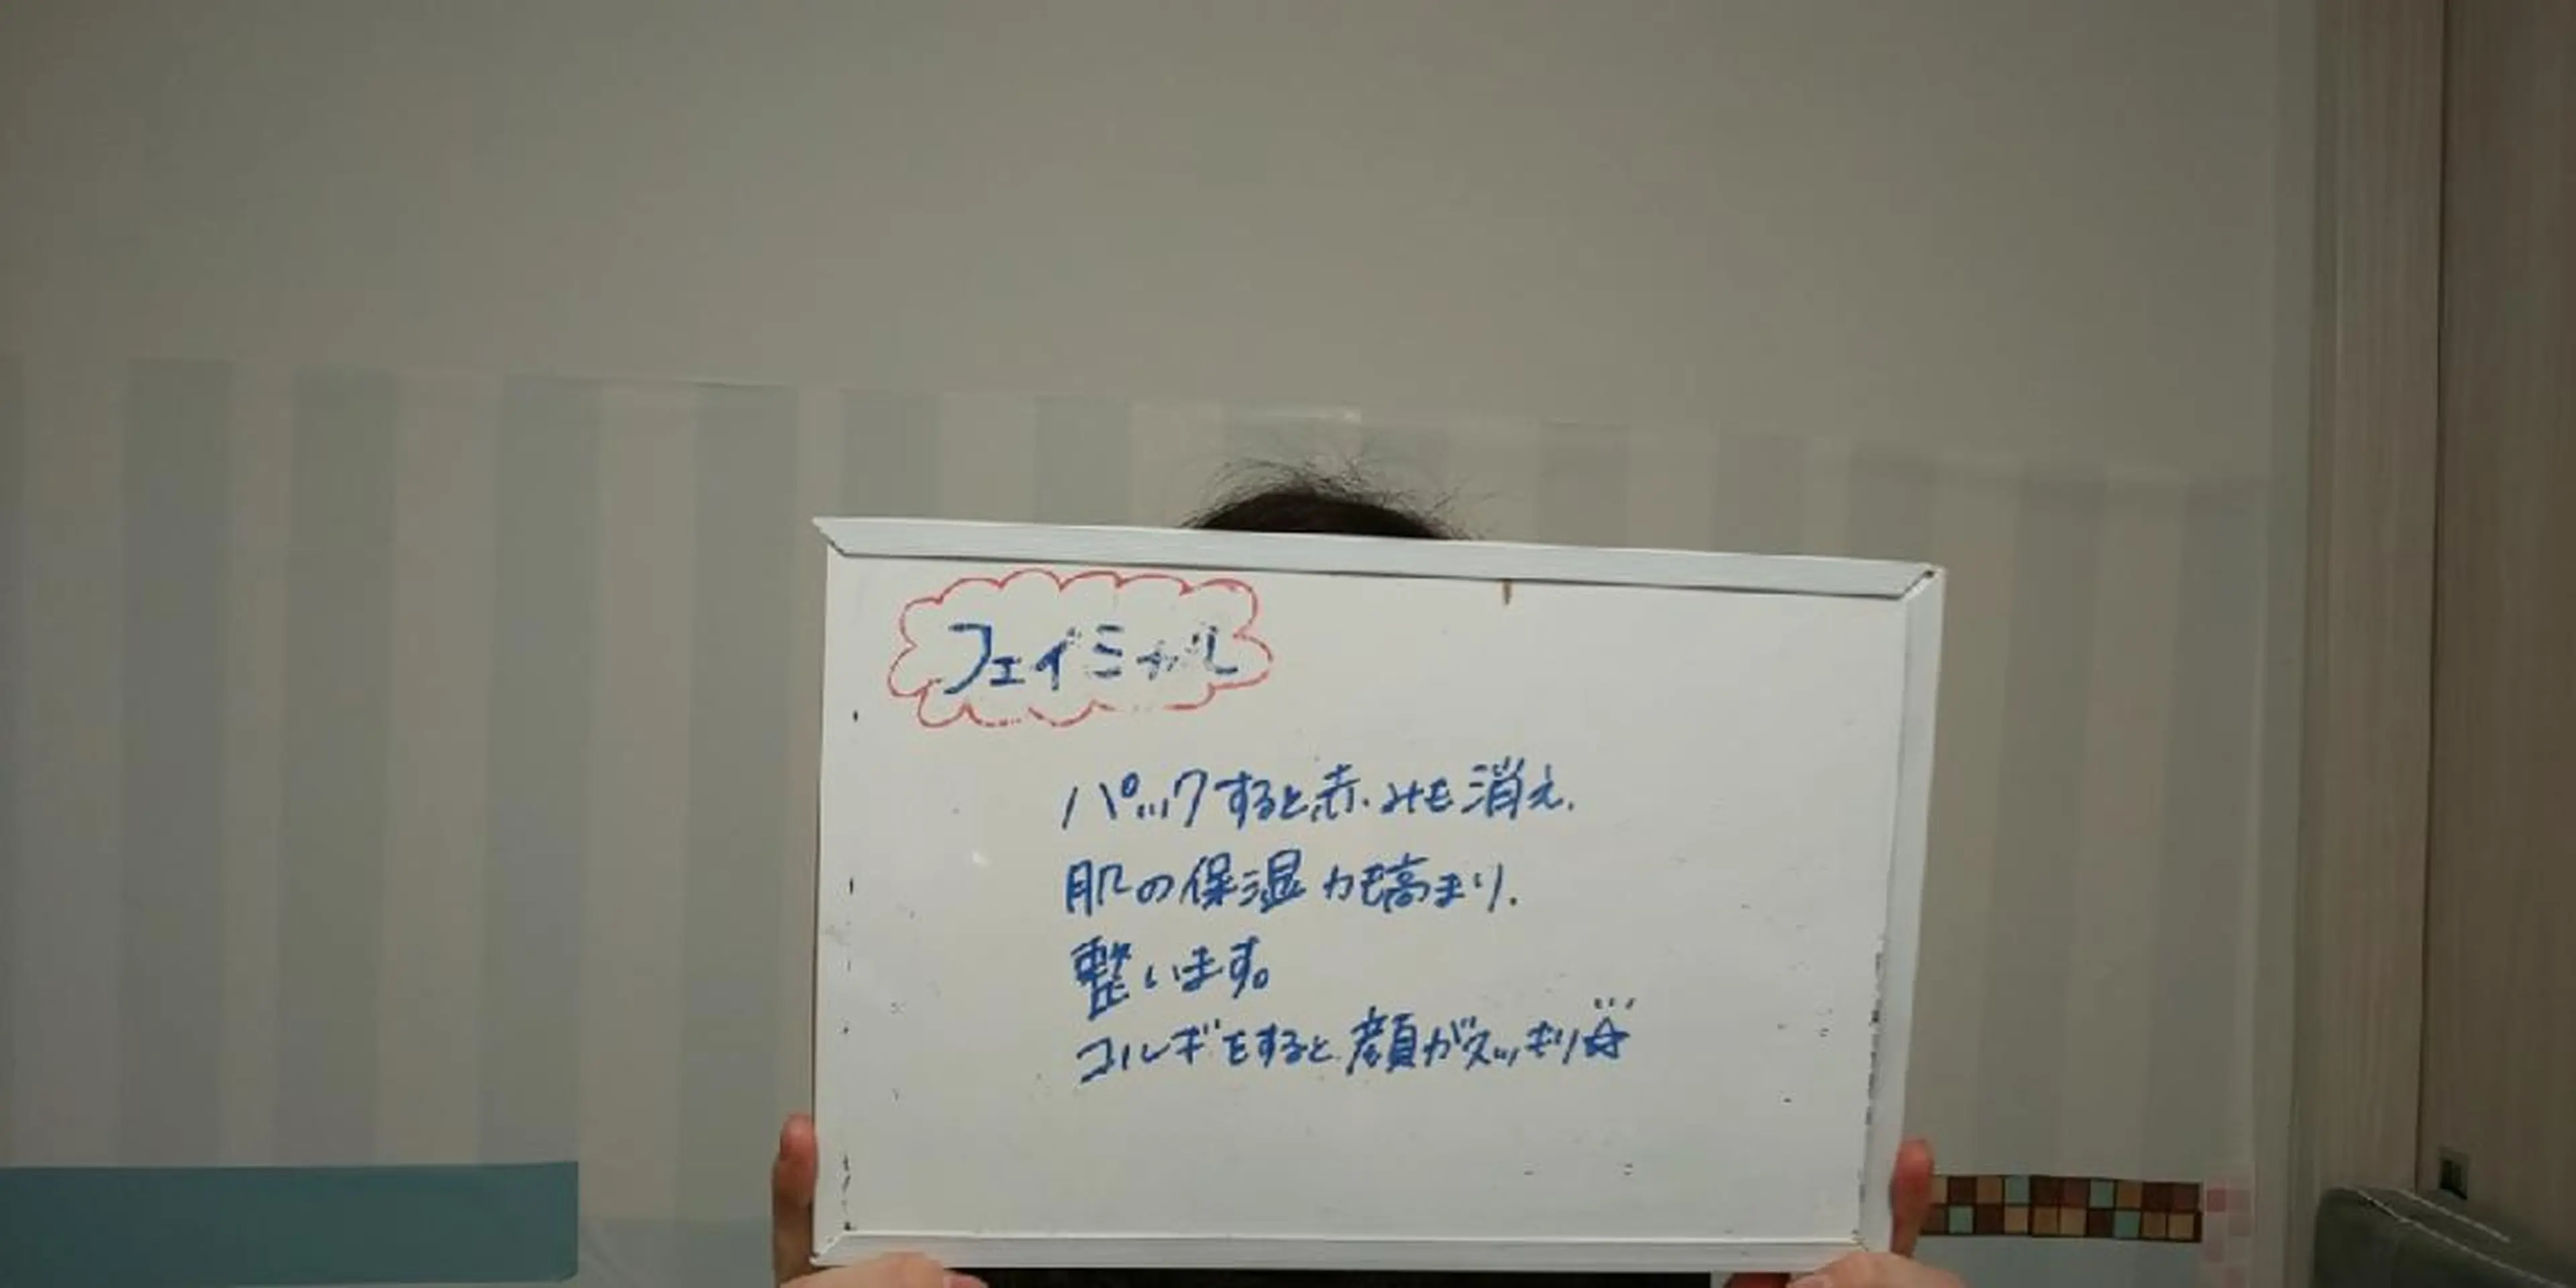 フェイシャル
パックすると赤みも消え、
肌の保湿力も高まり、
整います。
コルギをすると顔がスッキリ☆